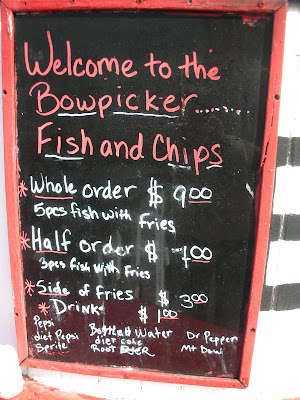 Welcome to the
Bowpicker........
Fish and Chips
*Whole order $ 9.00
5pcs fish with Fries
*Half order $ 7.00
3pcs Fish with Fries
*Side of Fries $ 3.00
*Drink $ 1.00
Pepsi Bottled Water Dr Pepper
diet Pepsi diet coke Mt Dew
Sprite Root BEER